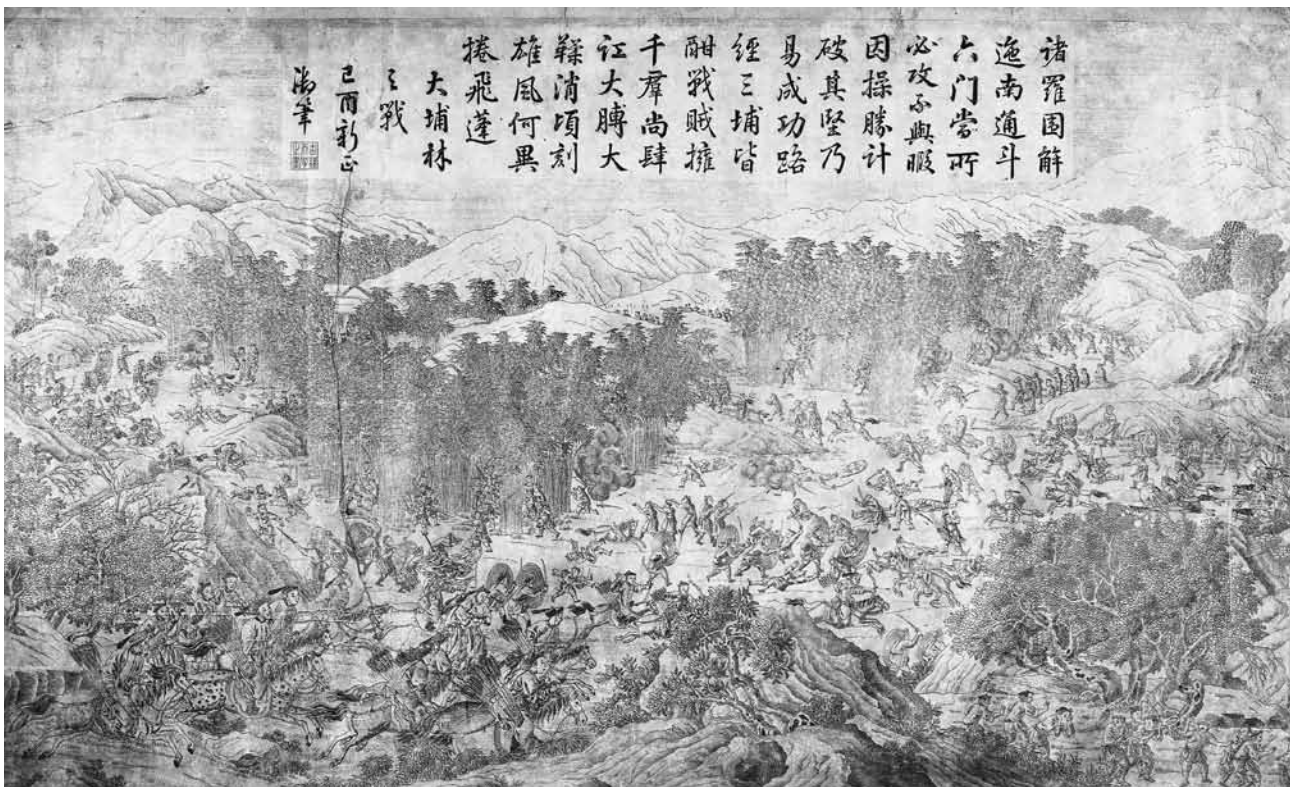 諸羅围解
迤南通斗
六门當所
必攻不與暇
因操勝計
破其堅乃
易成功路
經三埔皆
酣戰賊擁
千羣尚肆
訌大膊大
消頃刻
雄風何異
捲飛蓬
大埔林
之戰
己酉新正
御筆